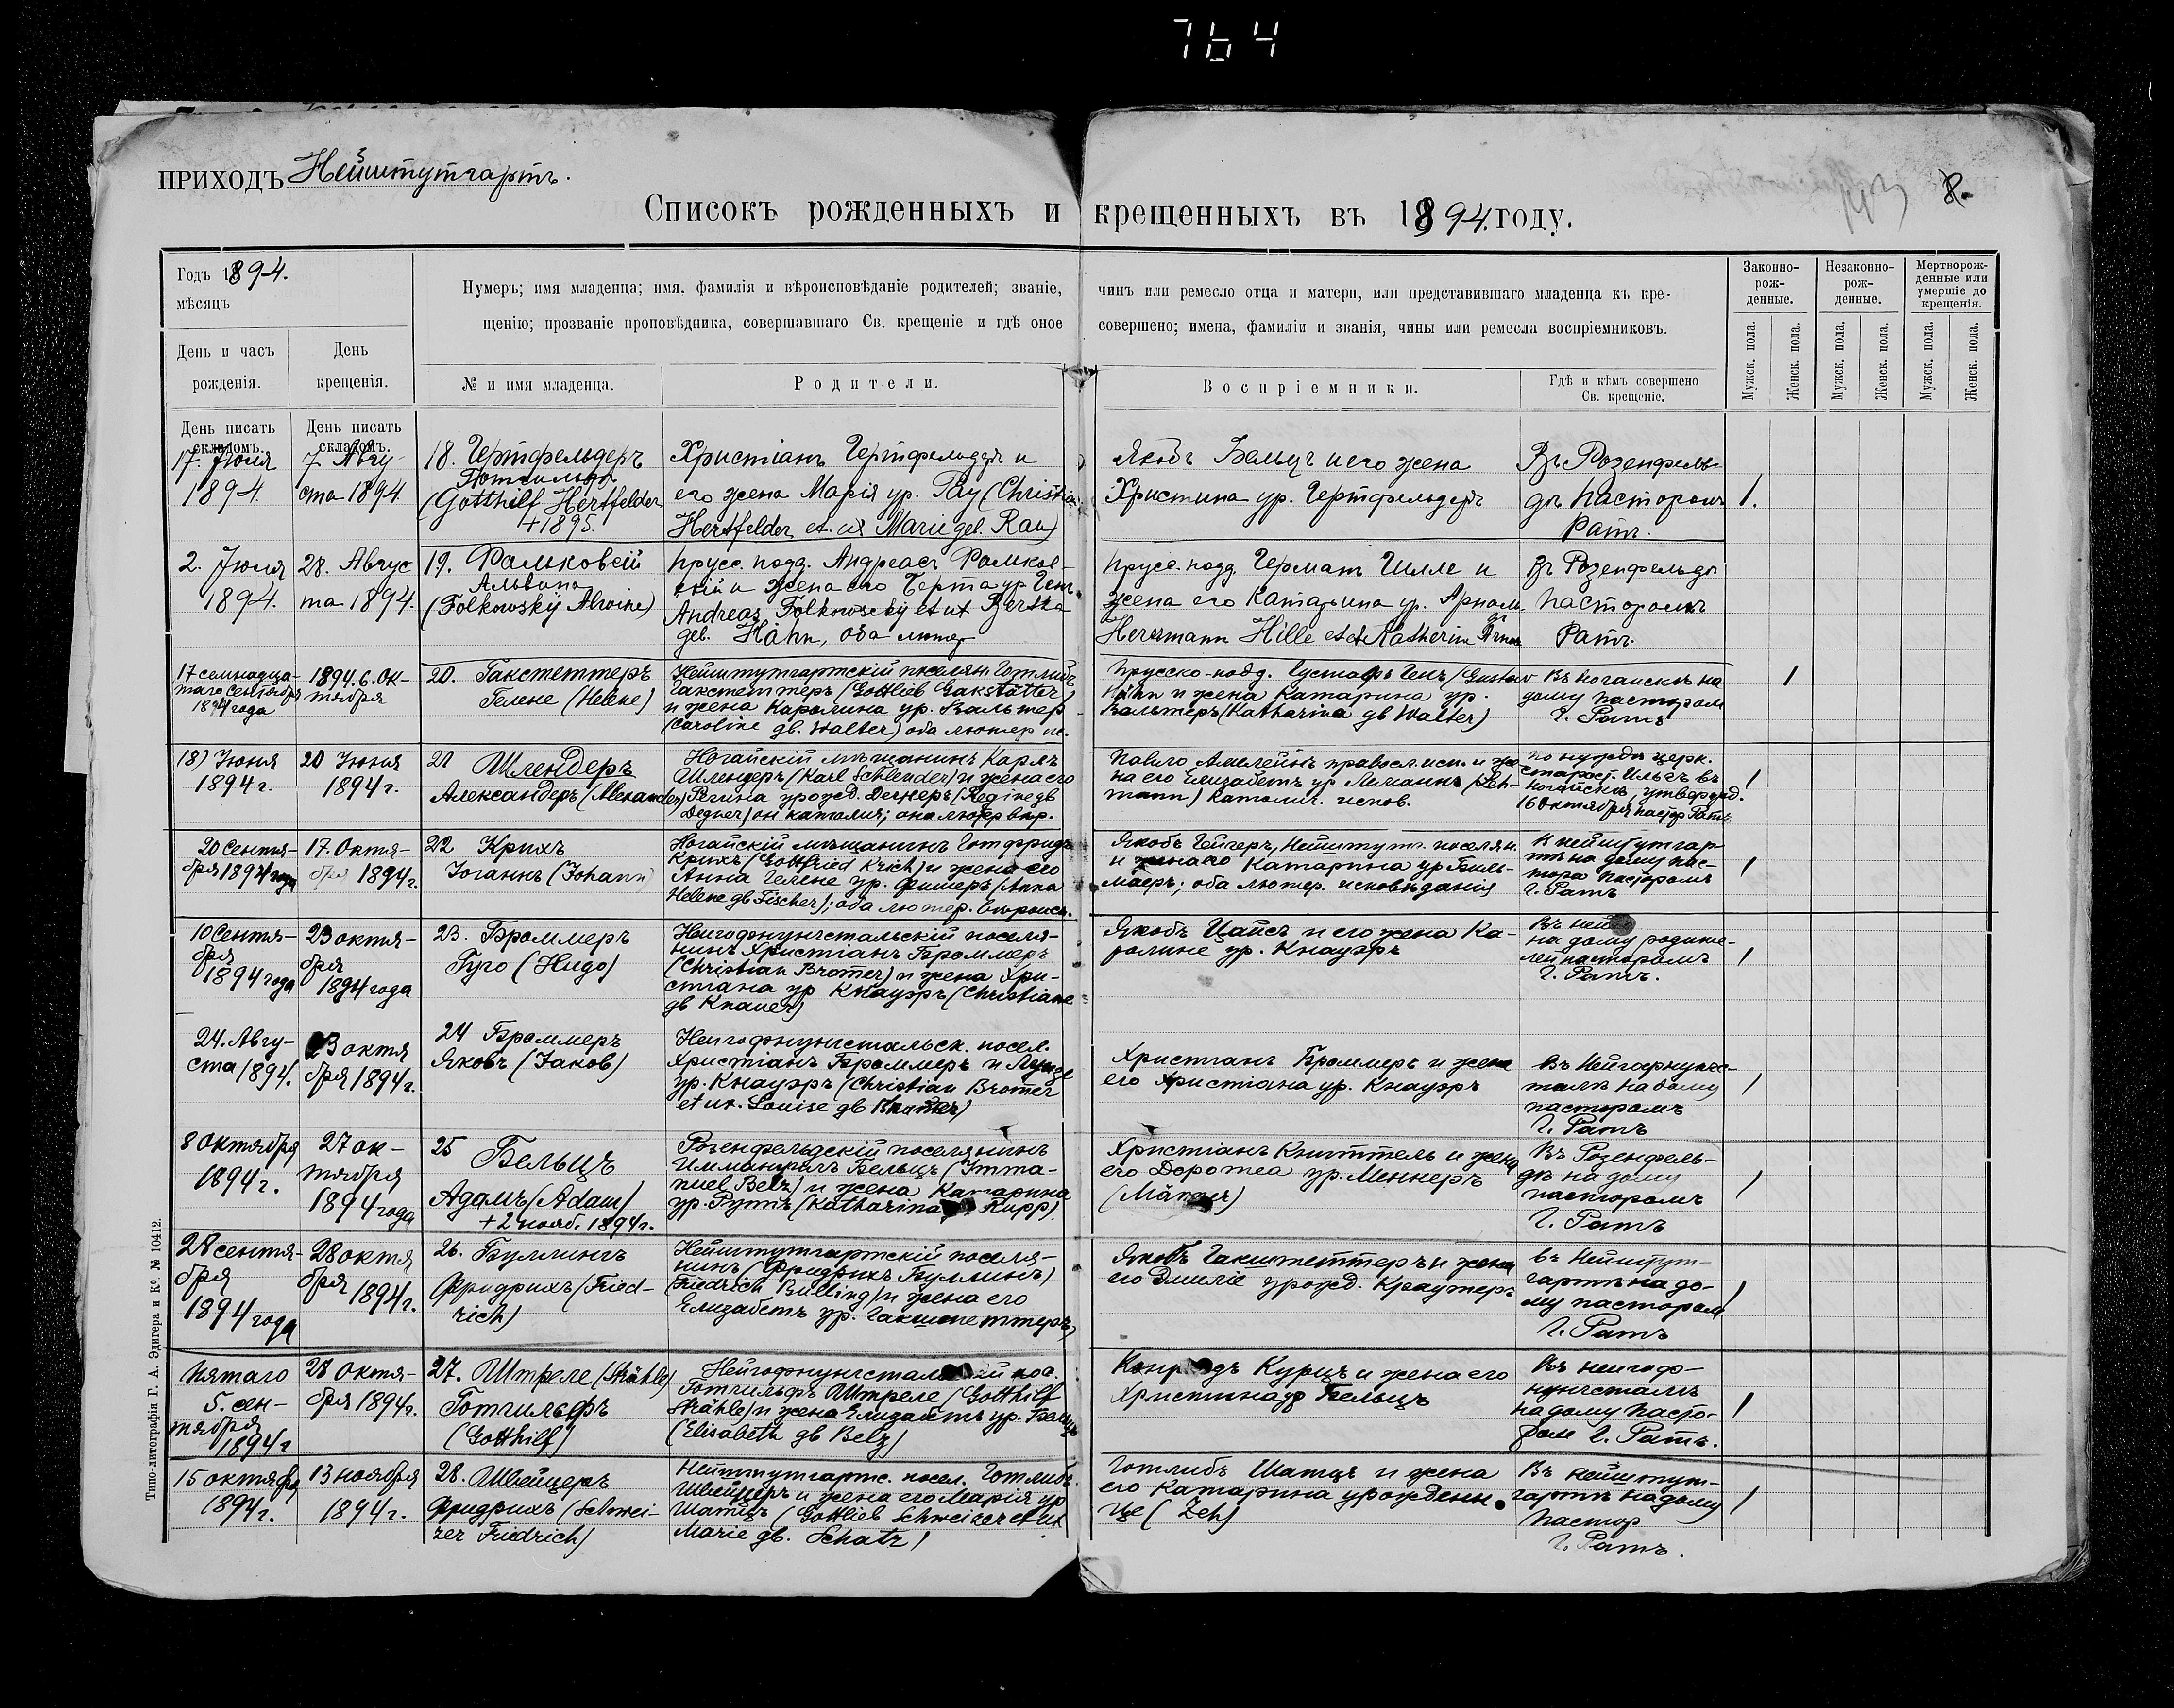 764
ПРИХОДЪ Нейштутгартъ.
8.
Списокъ рожденныхъ и крещенныхъ въ 1894. году.
Годъ 1894.
мѣсяцъ
День и часъ
рожденія.
День
крещенія.
Нумеръ; имя младенца; имя, фамилія и вѣроисповѣданіе родителей; званіе, чинъ или ремесло отца и матери, или представившаго младенца къ кре-
щенію; прозваніе проповѣдника, совершавшаго Св. крещеніе и гдѣ оное совершено; имена, фамиліи и званія, чины или ремесла воспріемниковъ.
№ и имя младенца.
Родители.
Воспріемники.
Гдѣ и кѣмъ совершено
Св. крещеніе.
Законно-
рож-
денные.
Незаконно-
рож-
денные.
Мертворож-
денные или
умершіе до
крещенія.
Мужск. пола.
Женск. пола.
Мужск. пола.
Женск. пола.
Мужск. пола.
Женск. пола.
День писать
складомъ.
День писать
складомъ.
17. Іюля
1894.
7. Авгу-
ста 1894.
18. Гертфельдеръ
Готгильфъ
(Gotthilf Hertfelder
+ 1895.
Христіанъ Гертфельдеръ и
его жена Марія ур. Рау (Christian
Hertfelder et ux Marie geb. Rau)
Якобъ Бельцъ и его жена
Христина ур. Гертфельдеръ
Въ Розенфель-
дѣ пасторомъ
Ратъ.
1.
2. Іюля
1894.
28. Авгус
та 1894.
19. Фальковскій
Альвина
(Folkowskÿ Alwine)
Прусс. подд. Андреасъ Фальков-
скій и жена его Берта ур. Генъ
Andreas Folkowsckÿ et ux Bertha
geb. Hähn, оба лютер
Прусс. подд. Германъ Гилле и
жена его Катарина ур. Арнольдъ
Herrmann Hille et ux Katherine
Въ Розенфельдѣ
пасторомъ
Ратъ.
17 семнадца-
таго Сентября
1894 года
1894. 6. Ок-
тября
20. Гакстеттеръ
Гелене (Helene)
Нейштутгартскій поселян. Готлибъ
Гакстеттеръ (Gottlieb Gakstätter)
и жена Каролина ур. Вальтер
(Caroline gb. Walter) оба лютер ис.
Прусско-подд. Густафъ Генъ (Gustav
Hähn и жена Катарина ур.
Вальтеръ (Katharina gb Walter)
Въ Ногайскѣ на
дому пасторомъ
Г. Ратъ
1
18) Іюня
1894 г.
20 Іюня
1894 г.
21 Шлендеръ
Александеръ (Alexander)
Ногайскій мѣщанинъ Карлъ
Шлендеръ (Karl Schlender) и жена его
Регина урожд. Дегнеръ (Regine gb
Degner) он католич; она лютер вѣр.
Павло Амелейнъ правосл. исп. и же-
на его Елизабетъ ур Леманнъ (Leh-
mann) католич. испов.
По нуждѣ церк.
старост. Ильгъ въ
Ногайскѣ, утвержд.
16 Октября пастор Ратъ
1
20 Сентя-
бря 1894 года
17. Октя-
бря 1894 г.
22 Крихъ
Іоганнъ (Johann)
Ногайскій мѣщанинъ Готфридъ
Крихъ (Gottfried Krich) и жена его
Анна Гелене ур. Фишеръ (Anna
Helene gb Fischer); оба лютер. вѣроисп.
Якобъ Гейгеръ, Нейштутг. поселян.
и жена его Катарина ур Биль-
маеръ; оба лютер. исповѣданія
В Нейштутгар-
тѣ на дому пас-
тора пасторомъ
Г. Ратъ
1
10 Сентя-
бря
1894 года
23 октя-
бря
1894 года
23. Броммеръ
Гуго (Hugo)
Нейгофнунгстальскій поселя-
нинъ Христіанъ Броммеръ
(Christian Bromer) и жена Хри-
стіана ур Кнауэръ (Christiane
gb Knauer)
Якобъ Цайсъ и его жена Ка-
ролине ур. Кнауэръ
Въ Ней
на дому родите-
лей пасторомъ
Г. Ратъ.
1
24. Авгу-
ста 1894.
23 октя
бря 1894 г.
24 Броммеръ
Яковъ (Jakob)
Нейгофнунгстальск. посел.
Христіанъ Броммеръ и Луизе
ур. Кнауэръ (Christian Bromer
et ux. Louise gb Knauer)
Христіанъ Броммеръ и жена
его Христіана ур. Кнауэръ
Въ Нейгофнунгс-
талѣ на дому
пасторомъ
Г. Ратъ
1
8 Октября
1894 г.
27 ок-
тября
1894 года
25 Бельцъ
Адамъ (Adam)
+ 2 нояб. 1894 г.
Розенфельдскій поселянинъ
Иммануилъ Бельцъ (Imma-
nuel Belz) и жена Катарина
ур. Руппъ (Katharina Rupp)
Христіанъ Книттель и жена
его Доротеа ур. Меннеръ
(Männer)
Въ Розенфель-
дѣ на дому
пасторомъ
Г. Ратъ
1
28 сентя-
бря
1894 года
28 октя
бря 1894 г.
26. Буллингъ
Фридрихъ (Fried-
rich)
Нейштутгартскій поселя-
нинъ (Фридрихъ Буллингъ)
Friedrich Bulling) и жена его
Елизабетъ ур. Гакштеттеръ)
Якобъ Гакштеттеръ и жена
его Эмиліе урожд. Краутеръ
въ Нейштут-
гартѣ на до-
му пасторомъ
Г. Ратъ
1
Пятаго
5. сен-
тября
1894 г
28 Октя-
бря 1894 г.
27. Штреле (Strähle)
Готгильфъ
(Gotthilf)
Нейгофнунгстальскій пос.
Готгильфъ Штреле (Gotthilf
Strähle) и жена Елизабетъ ур. Бельцъ
(Elisabeth gb Belz)
Конрадъ Курцъ и жена его
Христина ур Бельцъ
Въ Нейгоф-
нунгсталѣ
на дому Пасто-
ром Г. Ратъ.
1
15 октября
1894 г.
13 ноября
1894 г.
28. Швейцеръ
Фридрихъ (Schwei-
zer Friedrich)
Нейштутгартс. посел. Готлибъ
Швейцеръ и жена его Марія ур
Шатцъ (Gottlieb Schweizer et ux
Marie gb. Schatz)
Готлибъ Шатцъ и жена
его Катарина урожденн.
Це (Zeh)
Въ Нейштут-
гартѣ на дому
Пастор
Г. Ратъ.
1
Типо-литографія Г. А. Эдигера и Ко. № 10412.